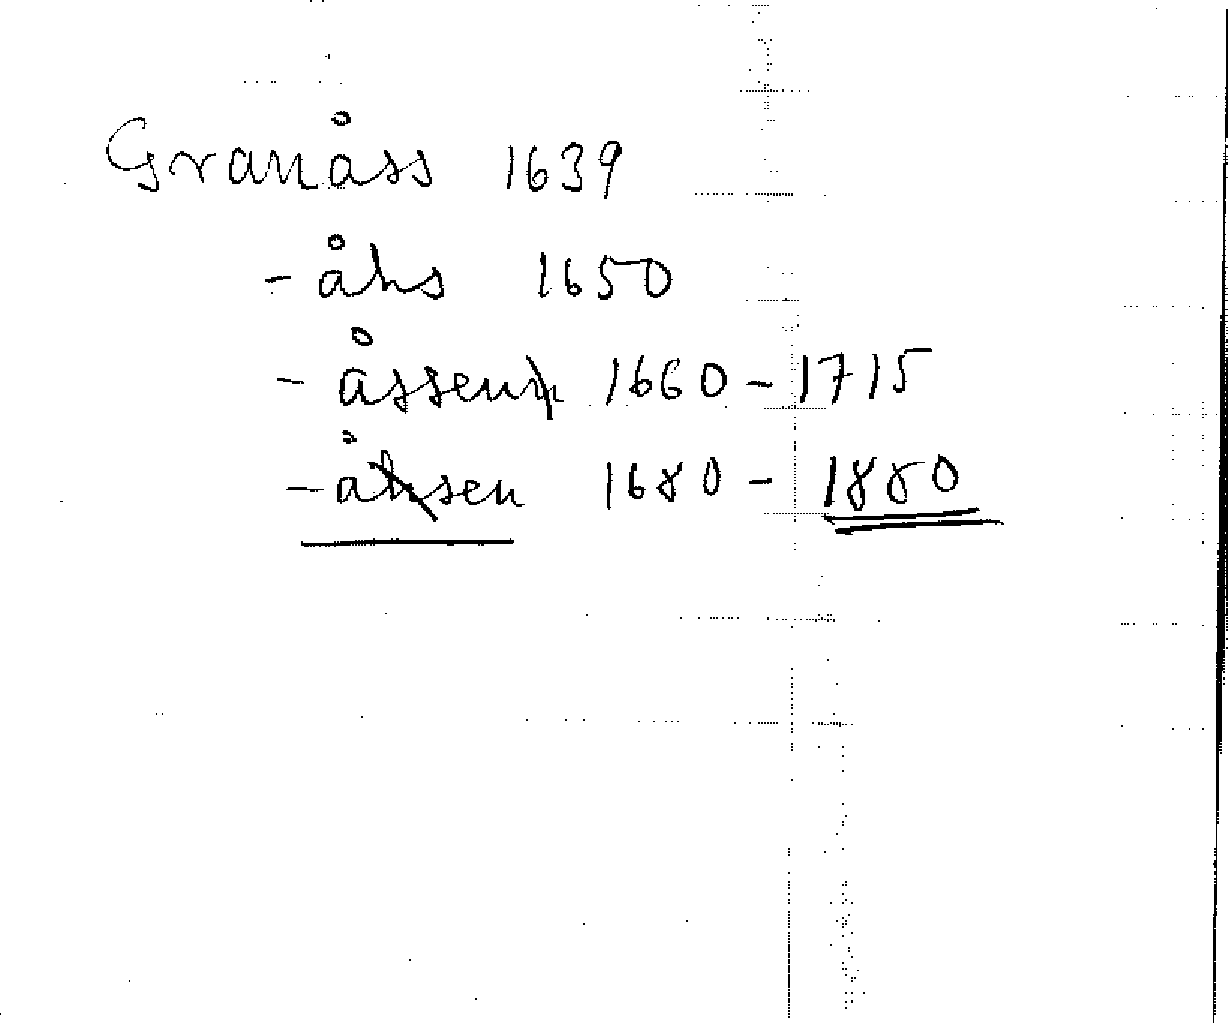 Granåss 1639
- åhs 1650
- åssen 1660 - 1715
- åhsen 1680 - 1880